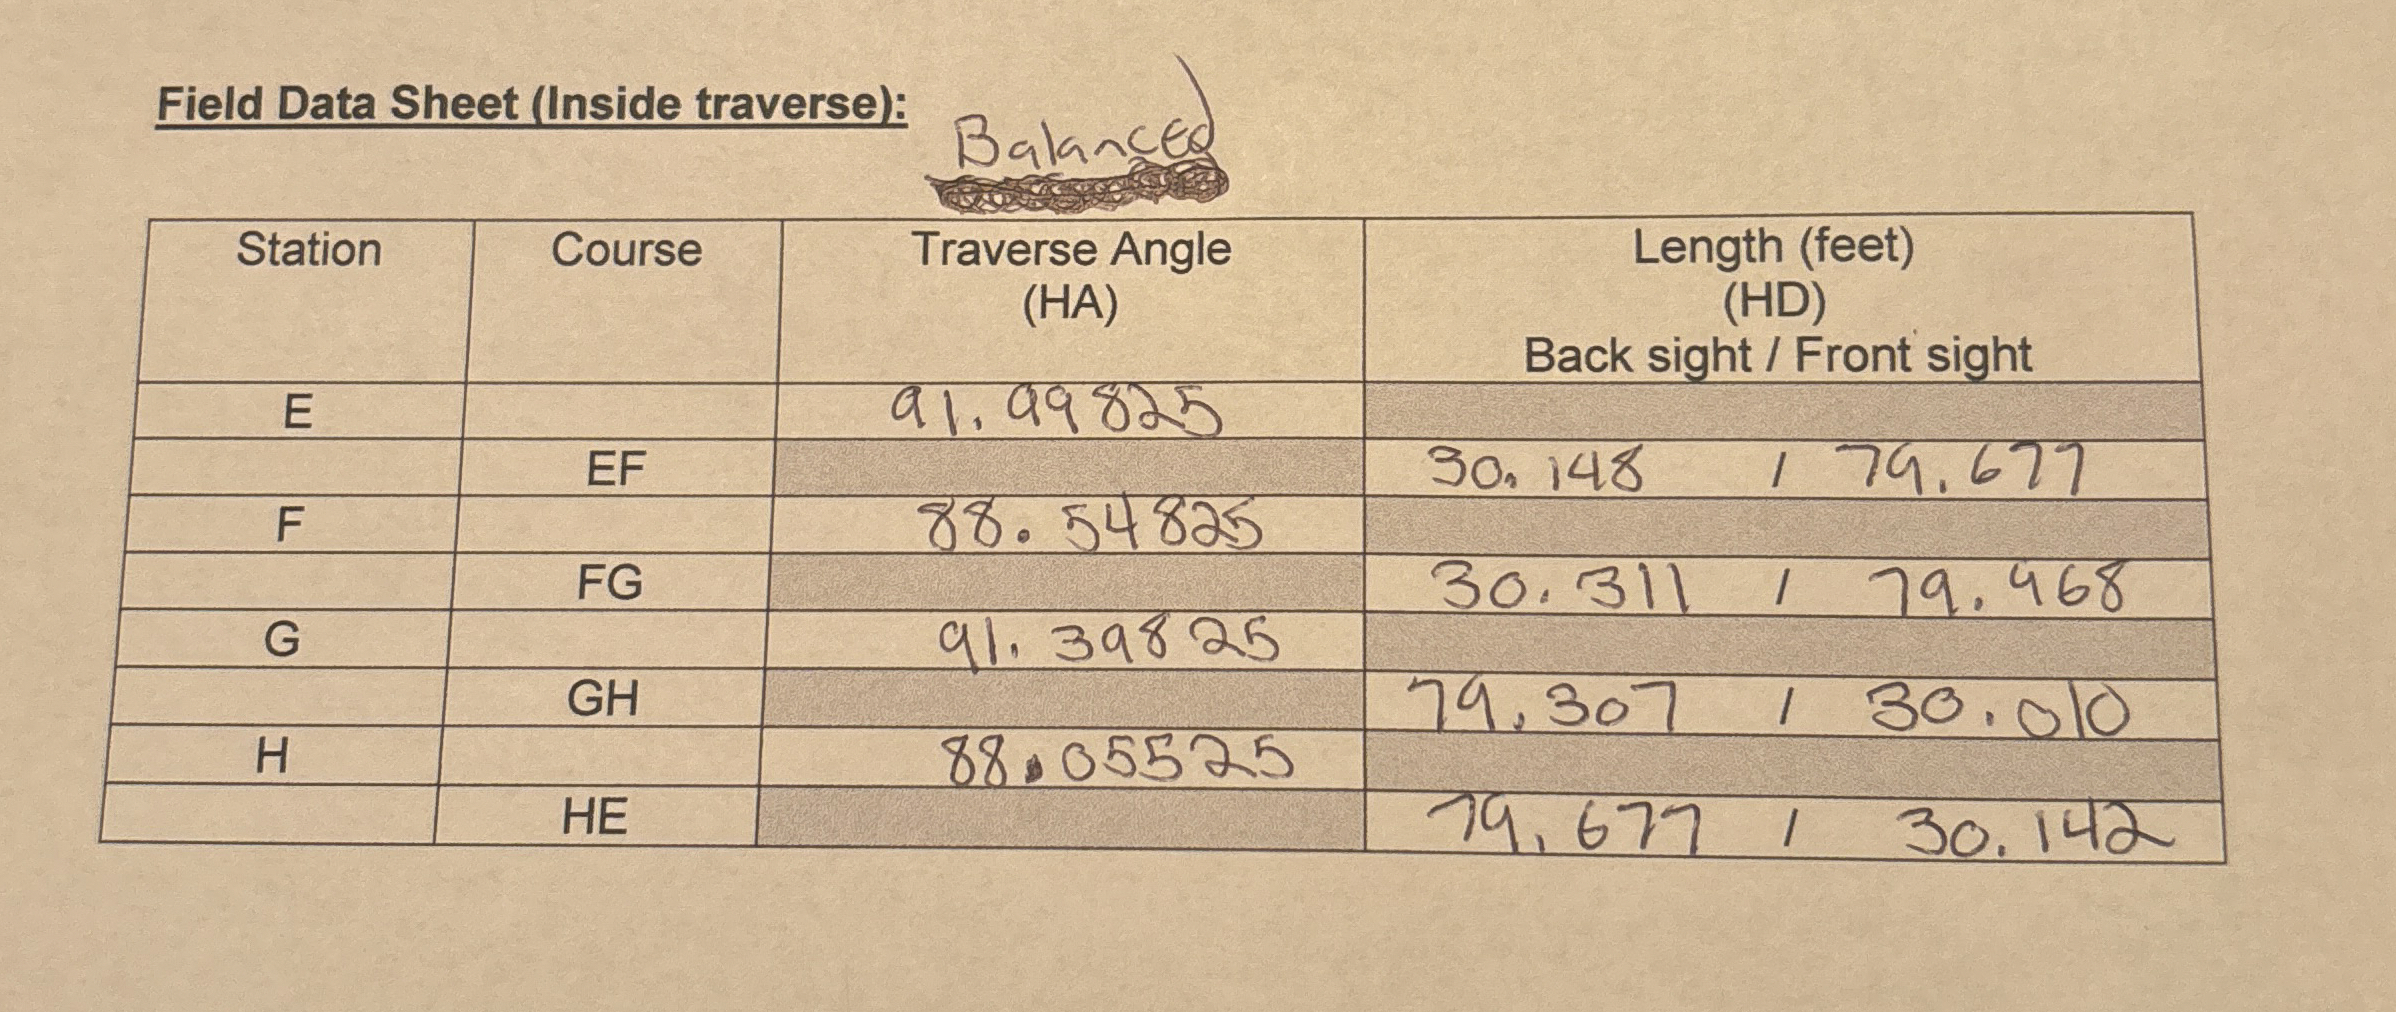 Field Data Sheet (Inside traverse):
Balanced
Station Course Traverse Angle (HA) Length (feet) (HD) Back sight / Front sight
E 91.99825
EF 30.148 / 79.677
F 88.54825
FG 30.311 / 79.468
G 91.39825
GH 79.307 / 30.010
H 88.05525
HE 79.677 / 30.142